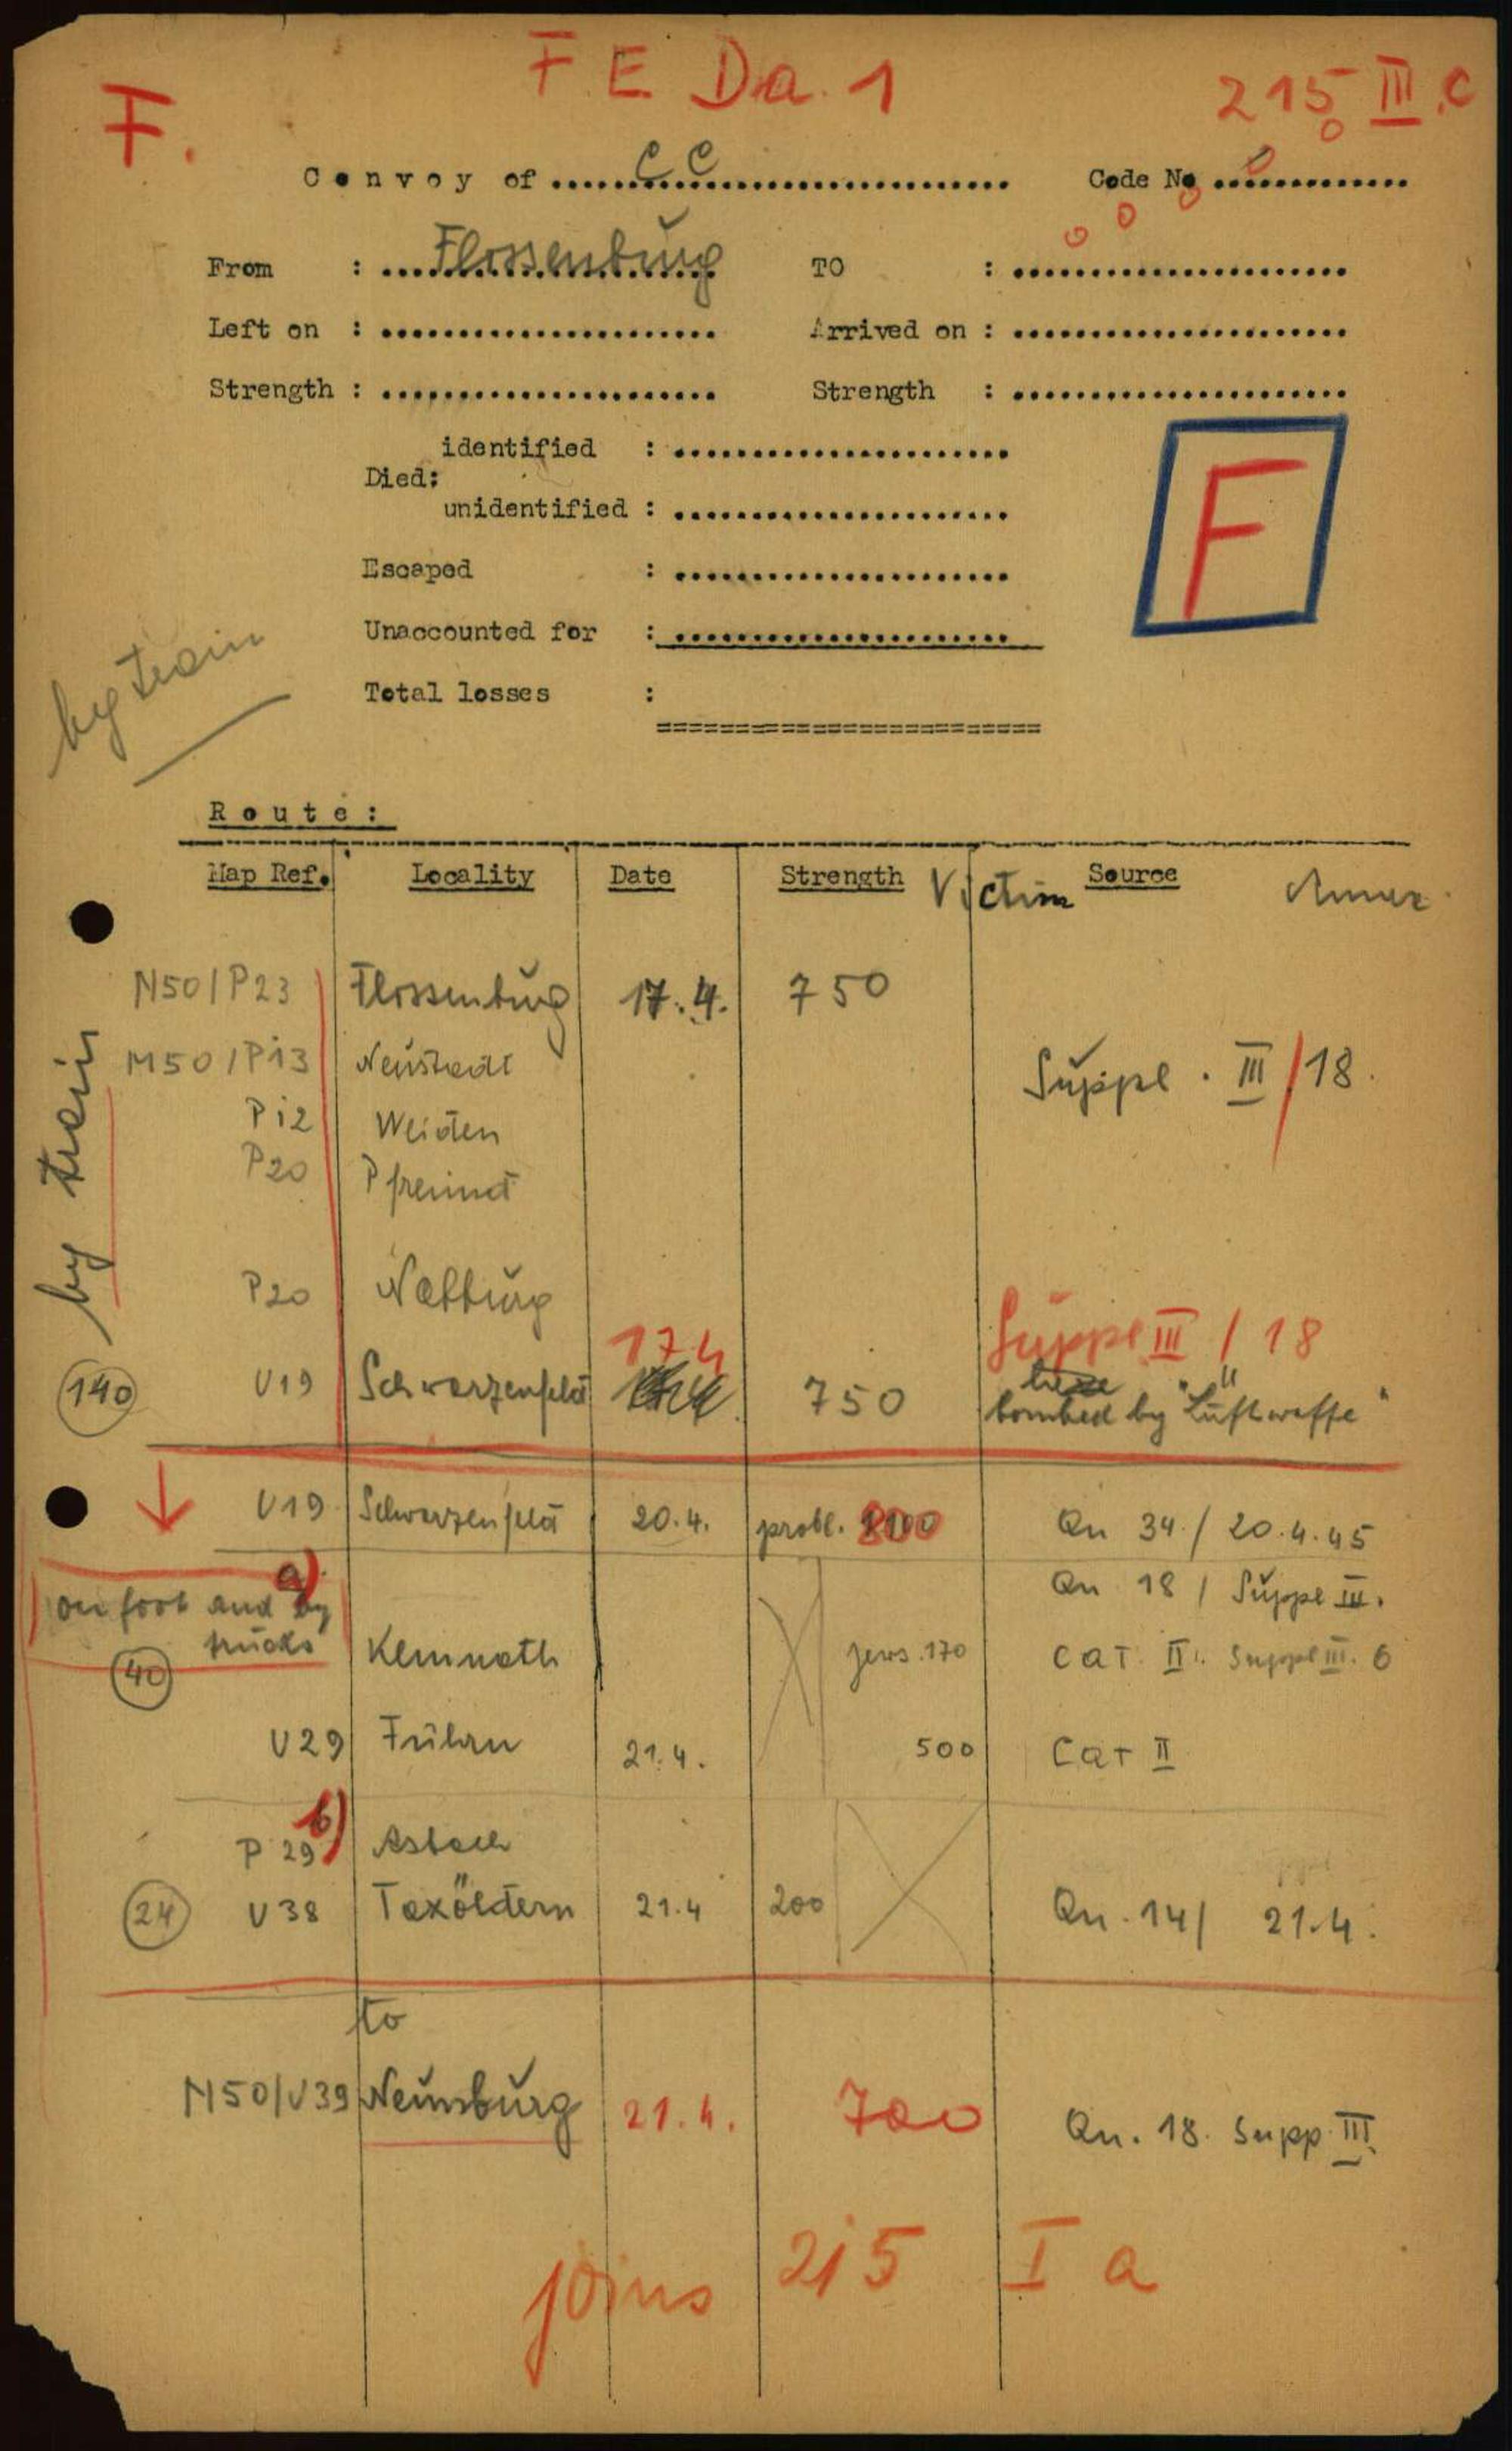 F E Da. 1
F.
215 III.c
Convoy of ....CC....
Code No ............
From : ...Flossenbürg
TO : ....................
Left on : ....................
Arrived on : ....................
Strength : ....................
Strength : ....................
identified : ....................
Died:
unidentified : ....................
F
Escaped : ....................
by train
Unaccounted for : ....................
Total losses :
=========================
Route:
Map Ref. Locality Date Strength Victim Source
by train
N50/P23 Flossenbürg 17.4. 750
M50/P13 Neustadt Suppl. III/18.
P12 Weiden
P20 Pfreimd
P20 Nabburg
174 Suppl III / 18
140 U19 Schwarzenfeld 750 here
bombed by "Luftwaffe"
U19 Schwarzenfeld 20.4. probl. 800 Qu 34./20.4.45
a) Qu 18 / Suppl III.
on foot and by
trucks
40 Kemnath jews.170 CAT. II. Suppl III. 6
U29 Fuhrn 21.4. 500 CAT II
b)
P 29 Asbach
24 U38 Taxöldern 21.4 200 Qu. 14/ 21.4.
to
N50/U39 Neunburg 21.4. 700 Qu. 18. Supp. III.
joins 215 I a